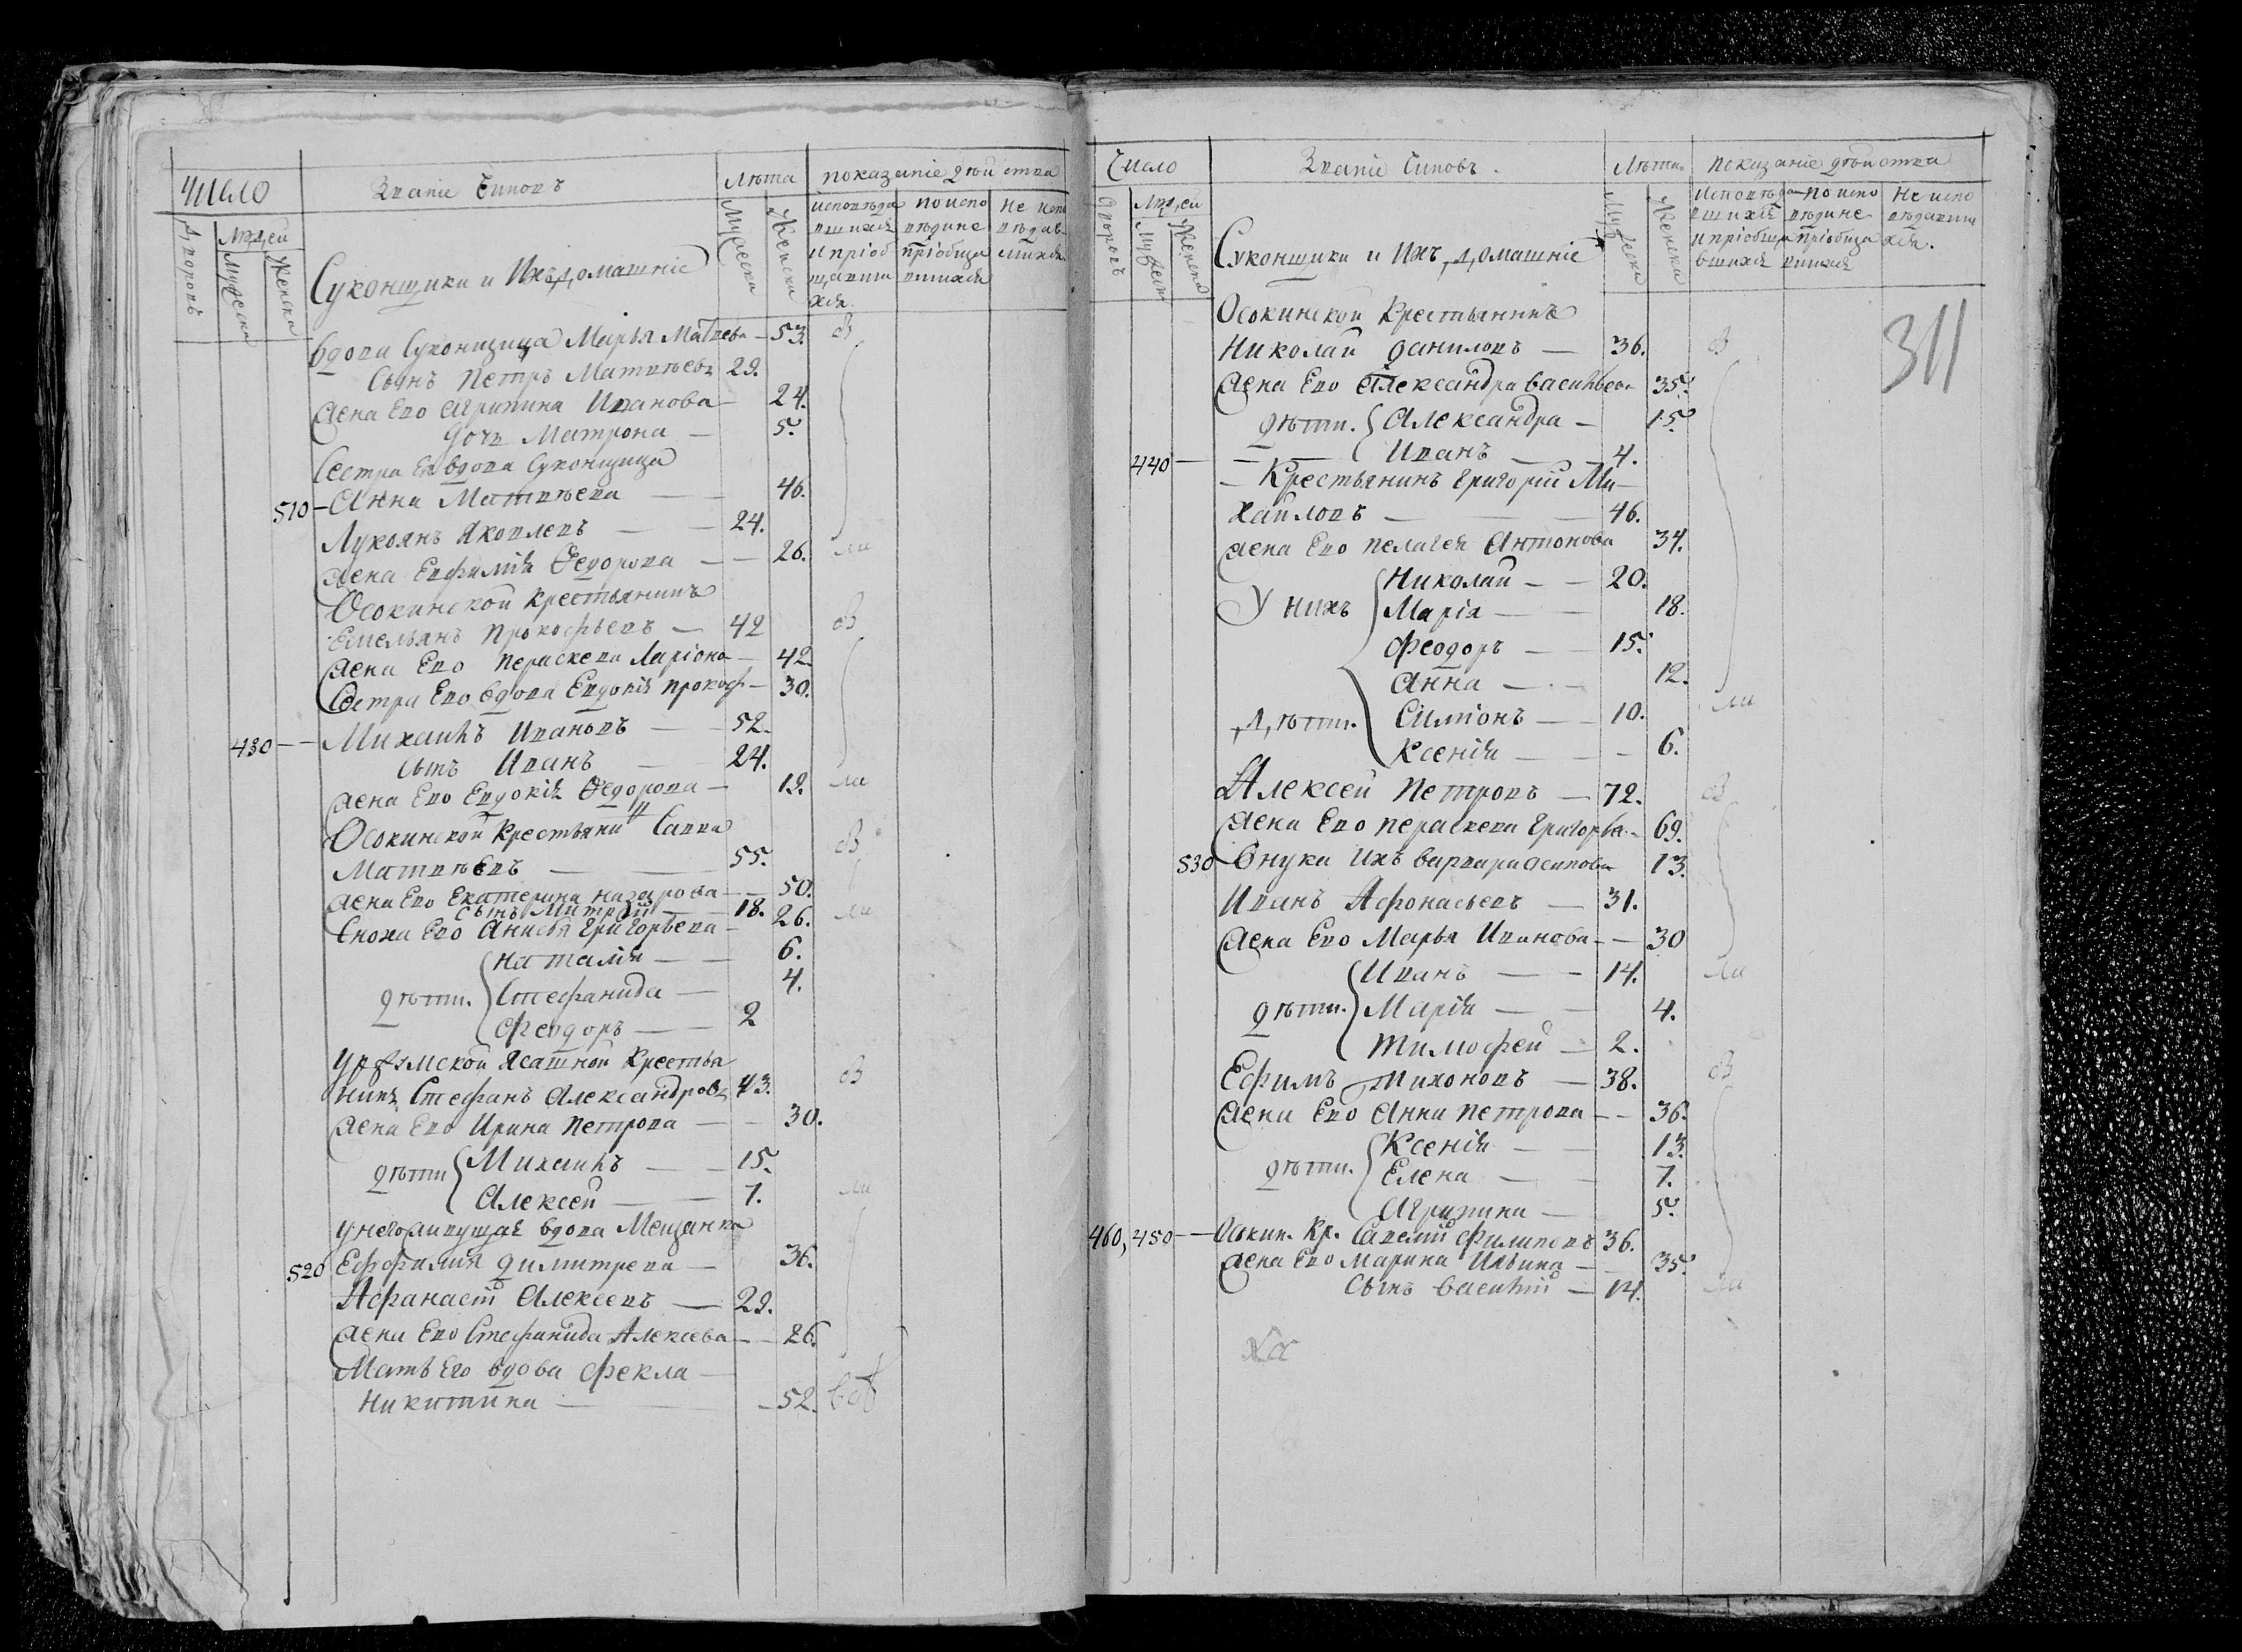 Число
Званіе Чиновъ
Лѣта
показаніе дѣйства
Дворовъ
Людей
Мужеска
Женска
Суконщики и Ихъ домашніе
Мужеска
Женска
исповѣда
вшихся
и пріоб
щавши
хся
по испо
вѣди не
пріобща
вшихся
Не испо
вѣдав
шихся
Вдова Суконщица Марья Матвева — 53. в
Сынъ Петръ Матвѣевъ 29.
Жена Ево Агрипина Иванова 24.
дочь Матрона — 5.
Сестра Ея вдова Суконщица
510 — Анна Матвѣева — 46.
Лукоянъ Яковлевъ — 24.
Жена Евфимія Федорова — 26. ли
Осокинской крестьянинъ
Емельянъ Прокофьевъ — 42 в
Жена Ево Параскева Ларіоно — 42.
Сестра Ево вдова Евдокія прокоф — 30.
430 — Михаилъ Ивановъ — 52.
сынъ Иванъ — 24.
Жена Ево Евдокія Федорова — 19. ли
Осокинской крестьяни Савва
Матвѣевъ — 55. в
Жена Ево Екатерина назарова — 50.
Сынъ Митрей — 18.
Сноха Ево Анисья Григорьева — 26. ли
Наталія — 6.
дѣти. Стефанида — 4.
Феодоръ — 2
Ясашной Крестья
нинъ Стефанъ Александровъ 43. в
Жена Ево Ирина Петрова — 30.
Михаилъ — 15.
дѣти
Алексей — 7. ли
у него живущая вдова Мещанка
520 Ефоимия димитрева — 36.
Афанасій Алексеевъ — 29.
Жена Ево Стефанида Алексева — 26.
Мать Его вдова Фекла —
Никитина — 52.
Число
Званіе Чиновъ.
Лѣта
показаніе дѣйства
311
Дворовъ
Людей
Мужеск
Женска
Суконщики и Ихъ домашніе
Мужеска
Женска
Исповѣда
вшихся
и пріобща
вшихся
по испо
вѣди не
пріобща
вшихся
Не испо
вѣдавши
хся.
Осокинской Крестьянинъ
Николай даниловъ — 36. в
Жена Ево Александра васильева 35.
дѣти. Александра — 15.
440 — Иванъ — 4.
— Крестьянинъ Григорій Ми—
хайловъ — 46.
Жена Ево Пелагея Антонова 34.
Николай — 20.
У нихъ Марія — 18.
Феодоръ — 15.
Анна — 12.
дѣти. Симіонъ — 10. ли
Ксенія — 6.
Алексей Петровъ — 72. в
Жена Ево Параскева Григорьв. — 69.
530 Внука Ихъ варвара осипова 13.
Иванъ Афонасьевъ — 31.
Жена Ево Марья Иванова — 30
Иванъ — 14. ли
дѣти. Марія — 4.
Тимофей — 2.
Ефимъ Тихоновъ — 38. в
Жена Ево Анна Петрова — 36.
Ксенія — 13.
дѣти. Елена — 7.
Агрипина — 5.
460, 450 — Кр. Савелій Филиповъ 36.
Жена Ево Марина Ильина — 35.
Сынъ Василій — 14. ли